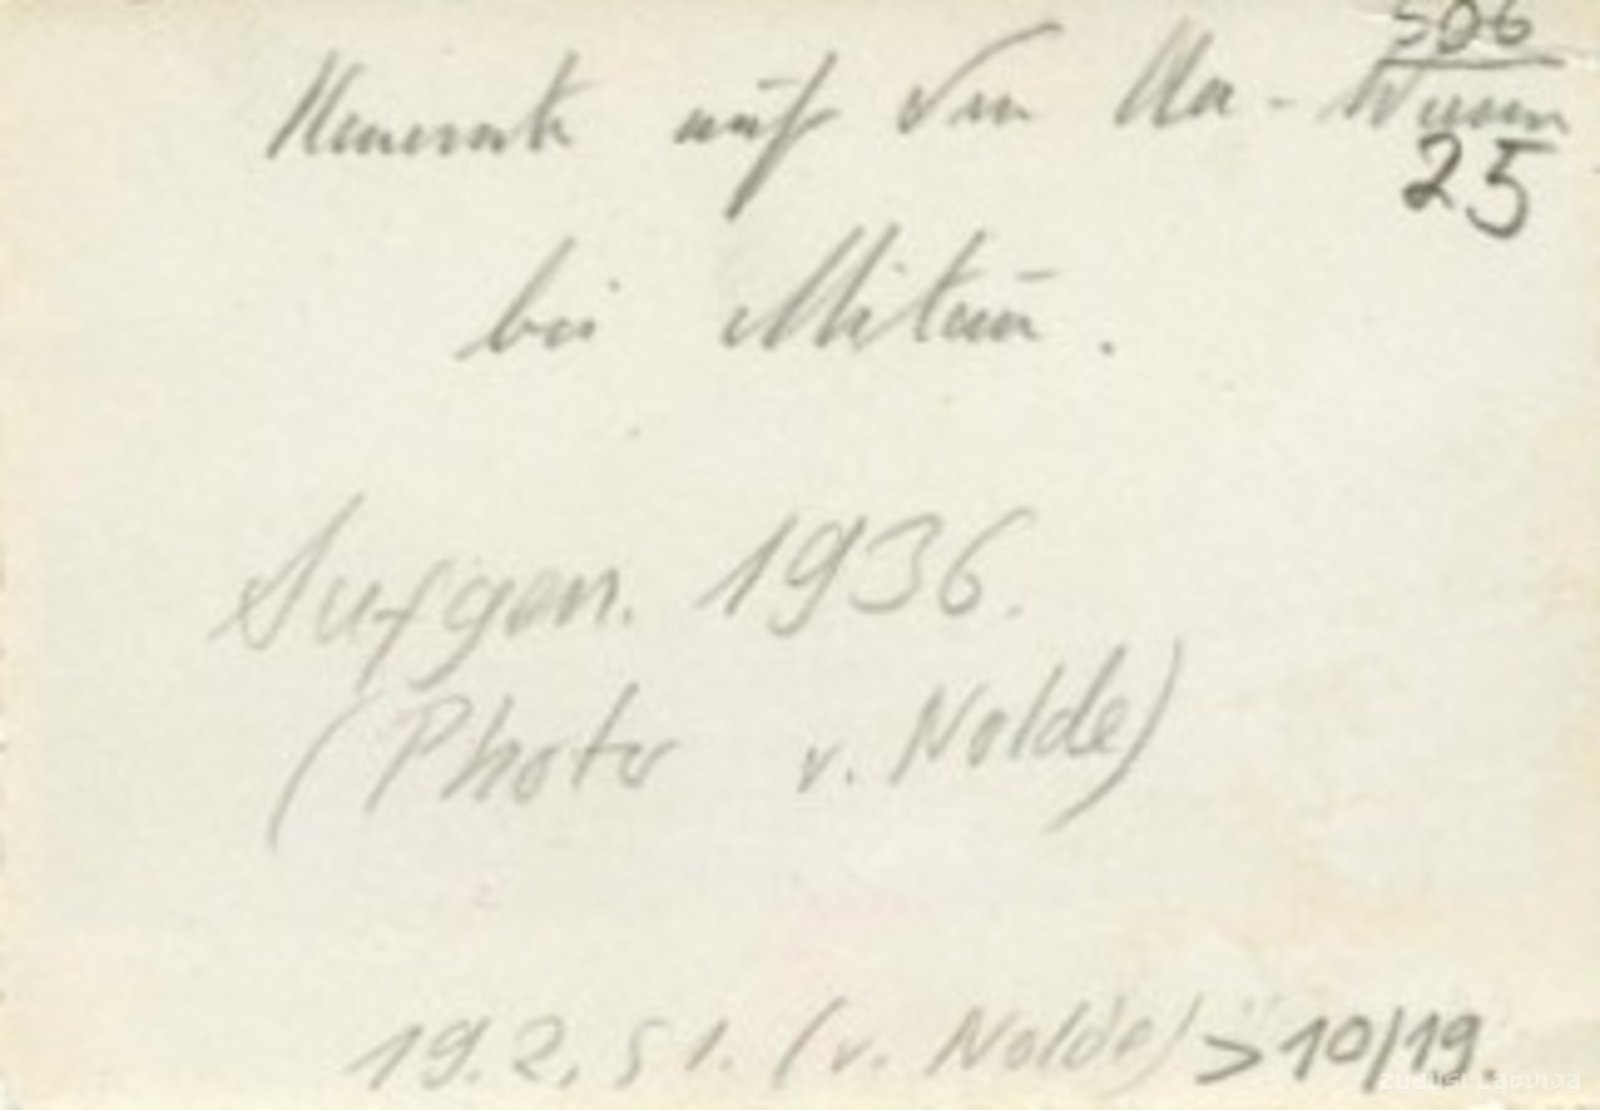 506
auf den Aa-Wiesen
25
bei Mitau.
Aufgen. 1936.
(Photo v. Nolde)
19.2.51. (v. Nolde) > 10/19.
zudusi Latvija